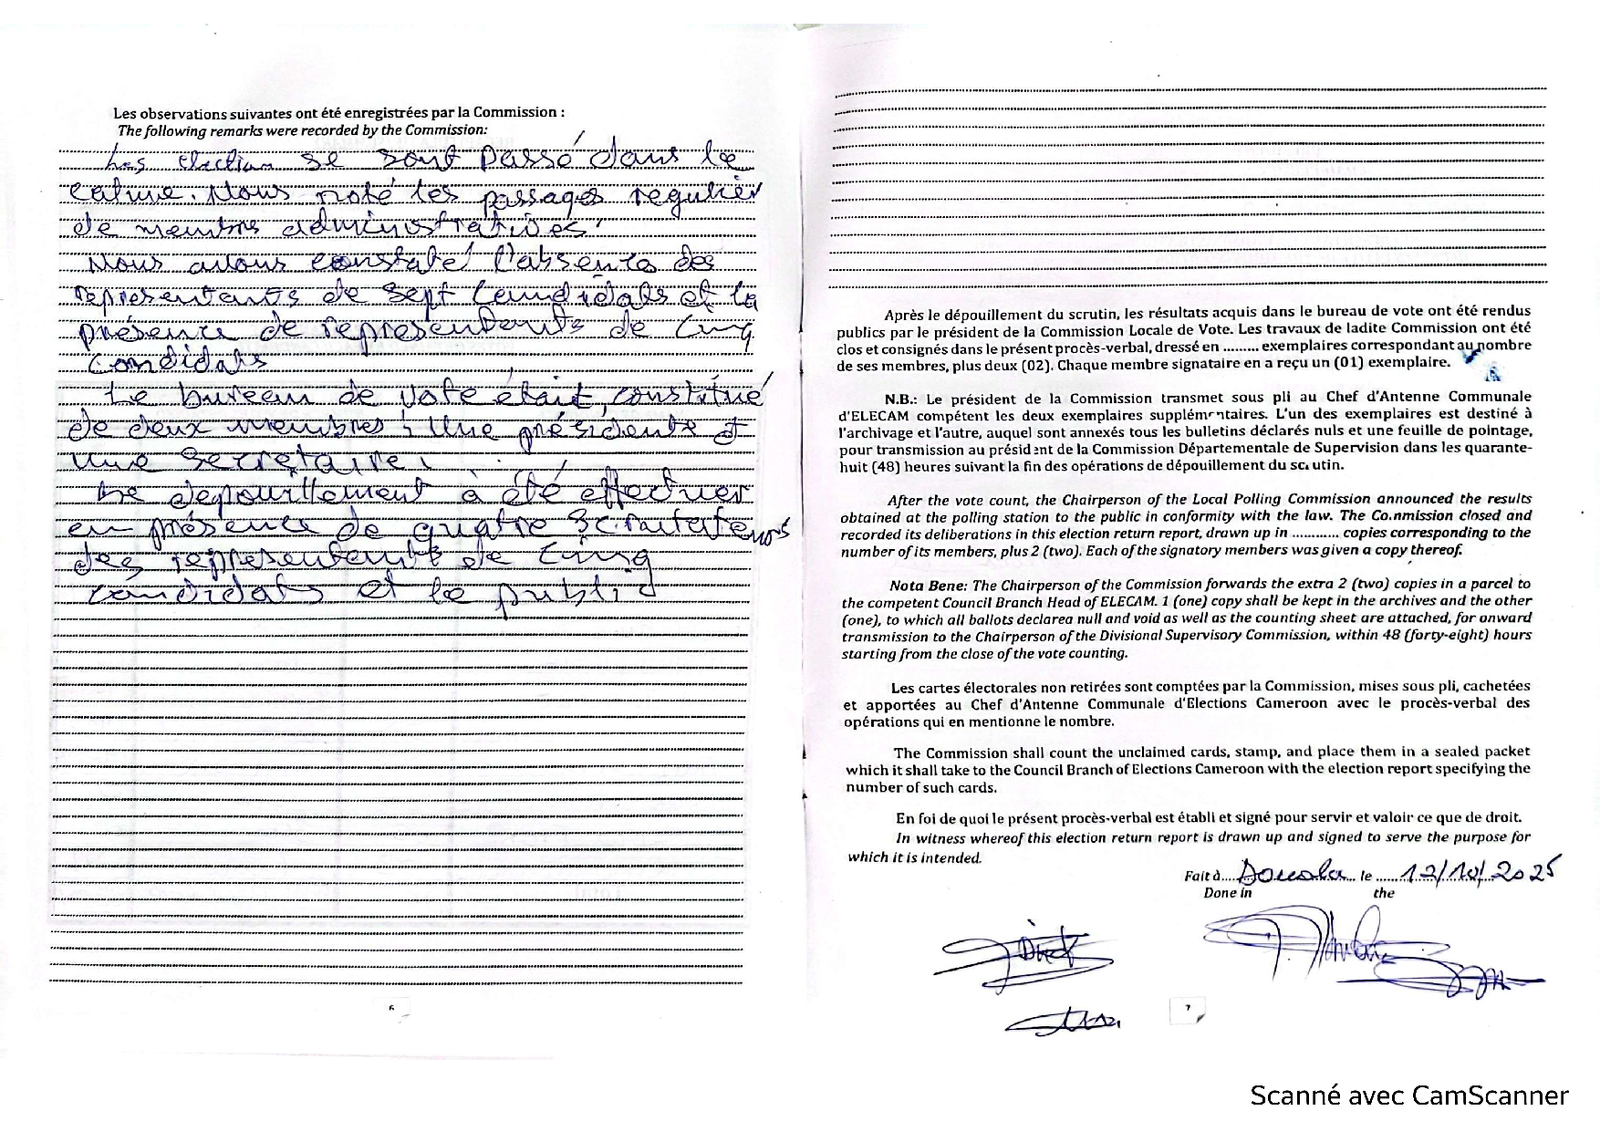 Les observations suivantes ont été enregistrées par la Commission :
The following remarks were recorded by the Commission:
Les election se sont passé dans le
calme. Nous noté les passages regulier
de membres administratives.
Nous avons constaté l'absence des
representants de sept Candidats et la
présence de representants de Cinq
Candidats
Le bureau de vote était constitué
de deux membres ; Une présidente et
une secretaire.
Le depouillement à été effectuer
en présence de quatre Scrutateurs
des representants de Cinq
candidats et le public
6
Après le dépouillement du scrutin, les résultats acquis dans le bureau de vote ont été rendus
publics par le président de la Commission Locale de Vote. Les travaux de ladite Commission ont été
clos et consignés dans le présent procès-verbal, dressé en ......... exemplaires correspondant au nombre
de ses membres, plus deux (02). Chaque membre signataire en a reçu un (01) exemplaire.
N.B.: Le président de la Commission transmet sous pli au Chef d'Antenne Communale
d'ELECAM compétent les deux exemplaires supplémentaires. L'un des exemplaires est destiné à
l'archivage et l'autre, auquel sont annexés tous les bulletins déclarés nuls et une feuille de pointage,
pour transmission au président de la Commission Départementale de Supervision dans les quarante-
huit (48) heures suivant la fin des opérations de dépouillement du scrutin.
After the vote count, the Chairperson of the Local Polling Commission announced the results
obtained at the polling station to the public in conformity with the law. The Commission closed and
recorded its deliberations in this election return report, drawn up in ............ copies corresponding to the
number of its members, plus 2 (two). Each of the signatory members was given a copy thereof.
Nota Bene: The Chairperson of the Commission forwards the extra 2 (two) copies in a parcel to
the competent Council Branch Head of ELECAM. 1 (one) copy shall be kept in the archives and the other
(one), to which all ballots declarea null and void as well as the counting sheet are attached, for onward
transmission to the Chairperson of the Divisional Supervisory Commission, within 48 (forty-eight) hours
starting from the close of the vote counting.
Les cartes électorales non retirées sont comptées par la Commission, mises sous pli, cachetées
et apportées au Chef d'Antenne Communale d'Elections Cameroon avec le procès-verbal des
opérations qui en mentionne le nombre.
The Commission shall count the unclaimed cards, stamp, and place them in a sealed packet
which it shall take to the Council Branch of Elections Cameroon with the election report specifying the
number of such cards.
En foi de quoi le présent procès-verbal est établi et signé pour servir et valoir ce que de droit.
In witness whereof this election return report is drawn up and signed to serve the purpose for
which it is intended.
Fait à.... Douala ... le ...... 12/10/2025
Done in the
7
Scanné avec CamScanner